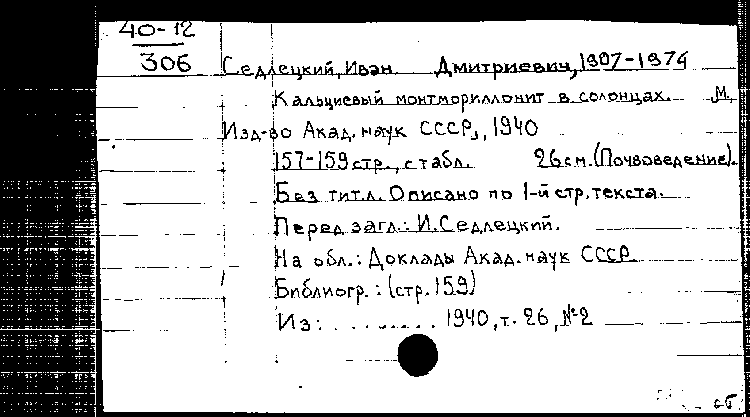 40-12
306
Седлецкий, Иван Дмитриевич, 1907-1974
Кальциевый монтмориллонит в солонцах. М.,
Изд-во Акад. наук СССР, 1940
157-159 стр., с табл. 26 см. (Почвоведение).
Без тит. л. Описано по 1-й стр. текста.
Перед загл.: И. Седлецкий.
На обл.: Доклады Акад. наук СССР
Библиогр.: (стр. 159)
Из: ......... 1940, т. 26, №2
сб